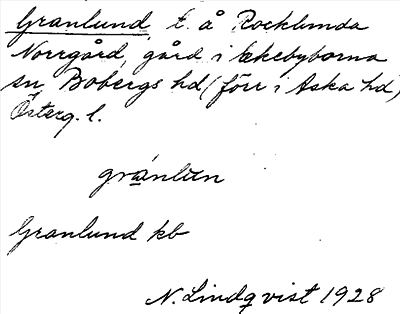 Granlund, t. å Rocklunda
Norrgård, gård i Ekebyborna
sn, Bobergs hd (förr i Aska hd)
Österg. l.
gránlun
Granlund kb
N. Lindqvist 1928